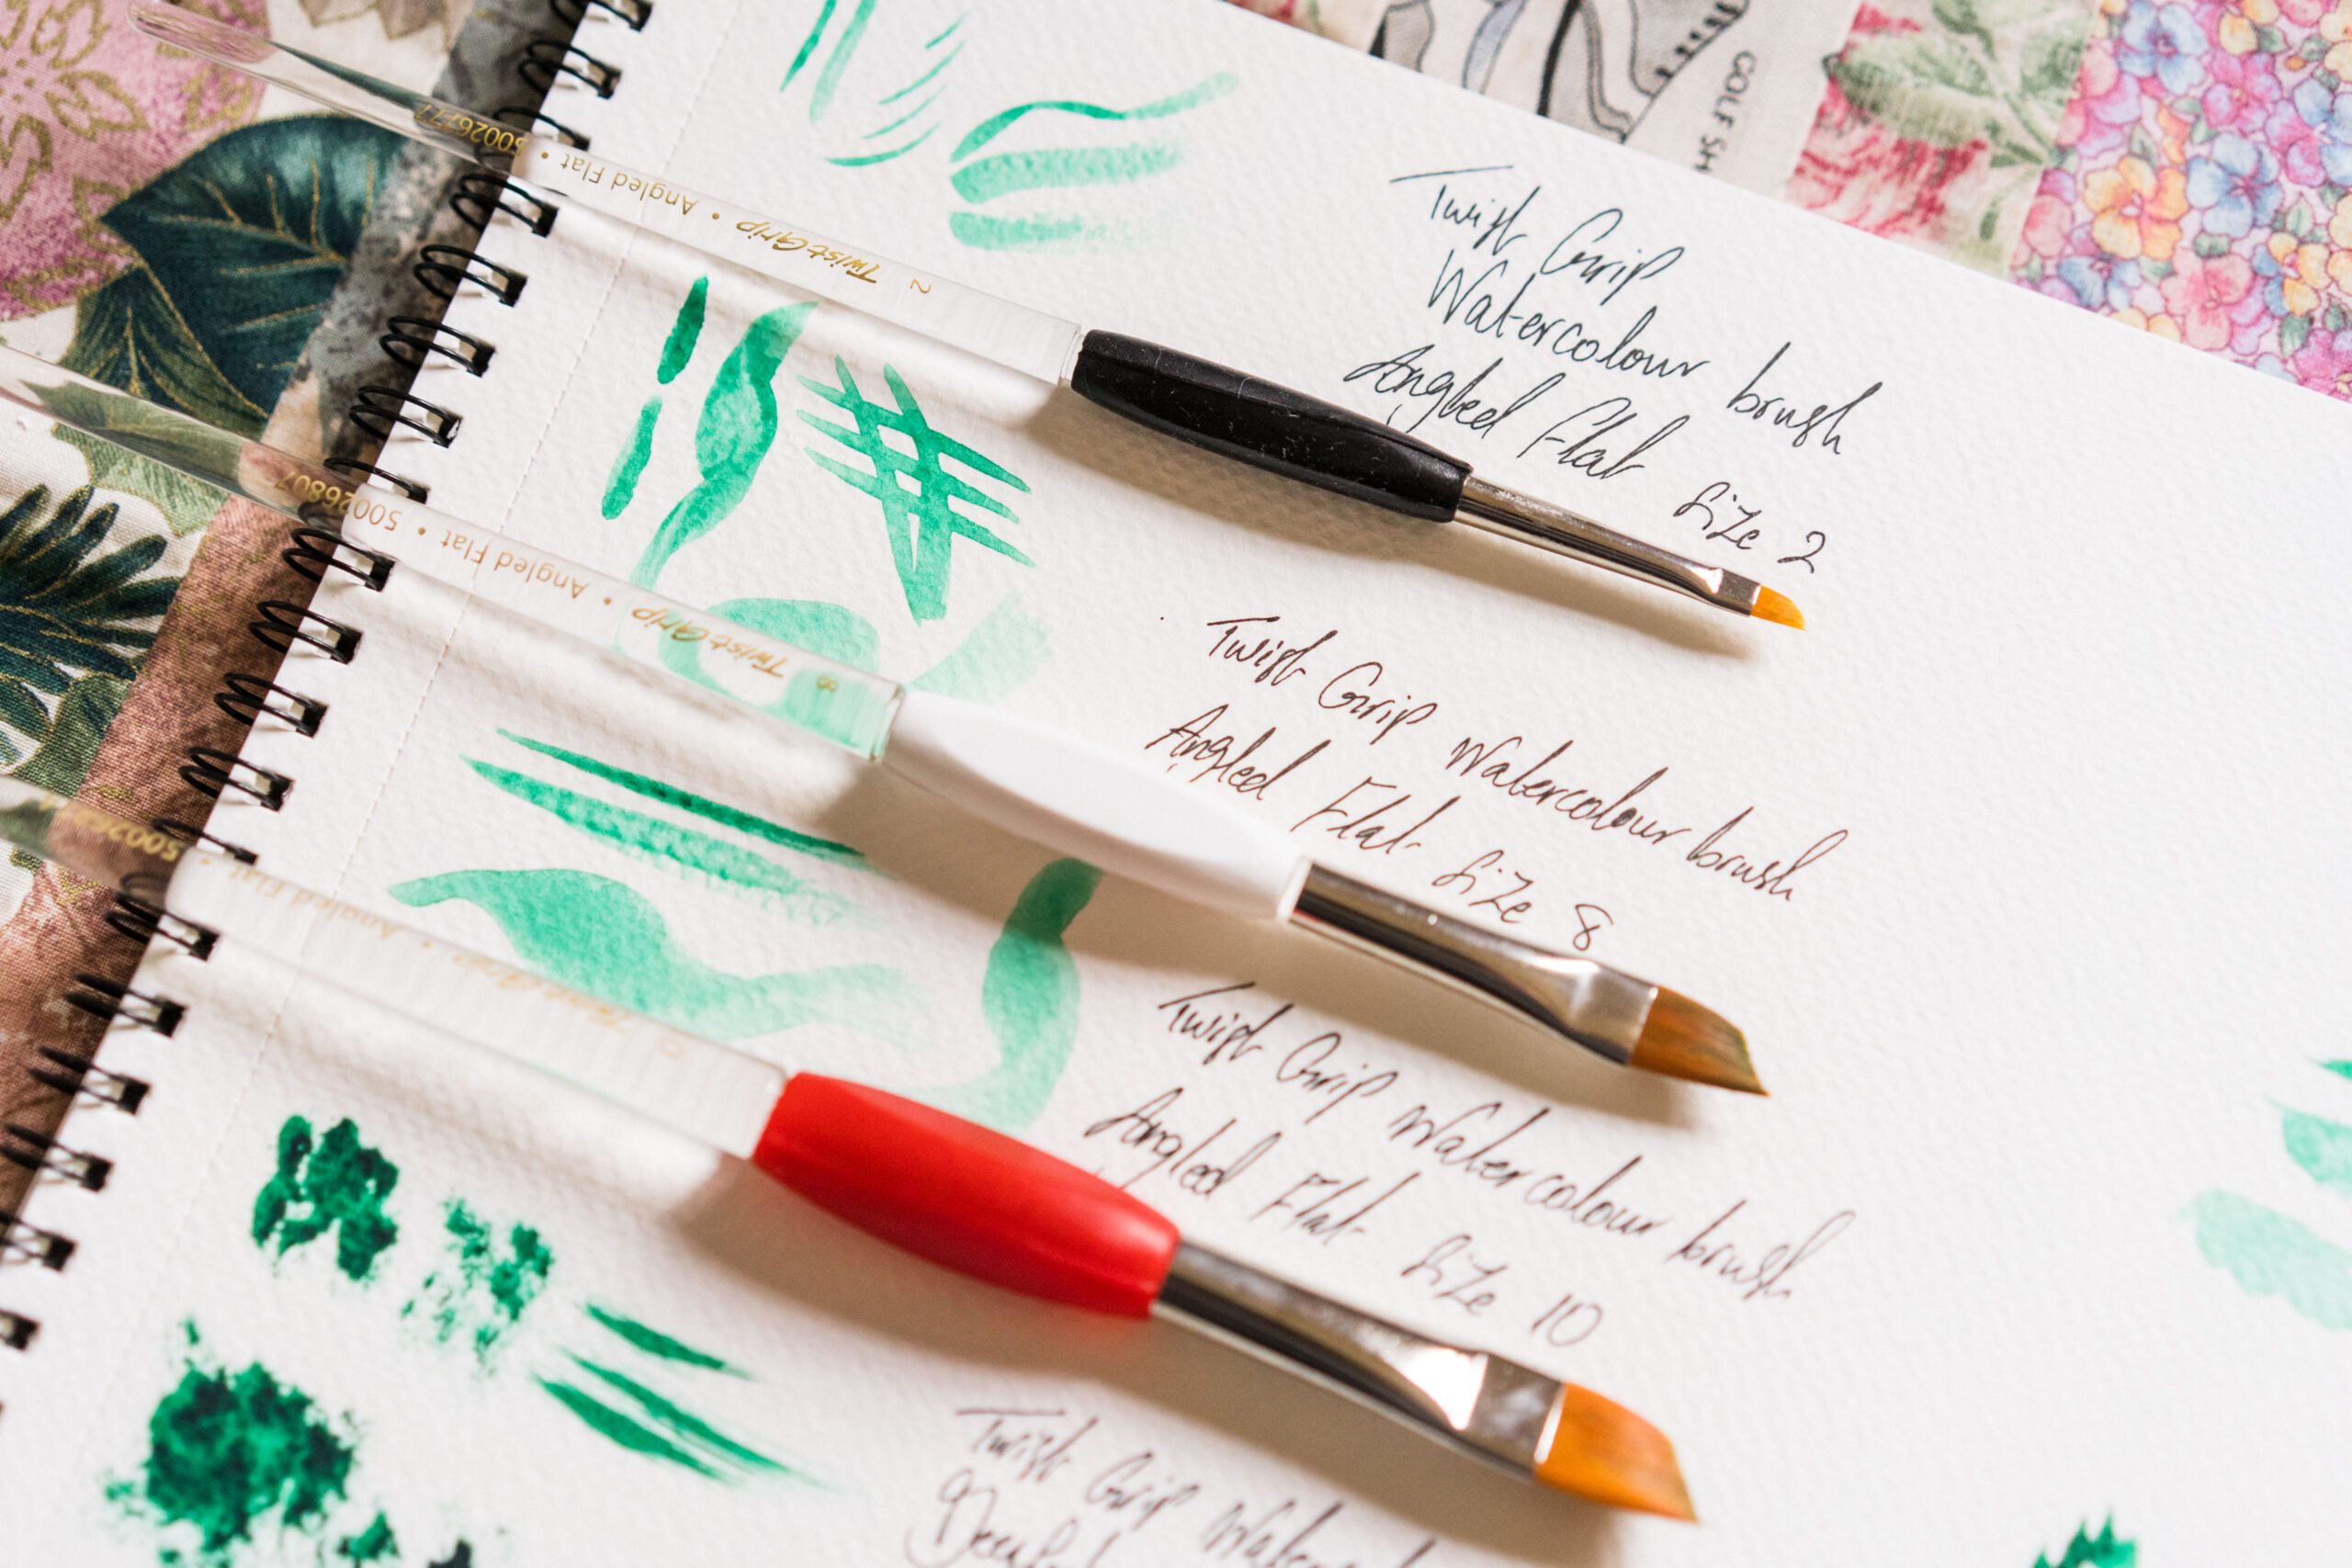 GOLF SH
50026777 • Angled Flat • TwistGrip 2
Twist Grip
Watercolour brush
Angled Flat Size 2
50026807 • Angled Flat • TwistGrip 8
Twist Grip Watercolour brush
Angled Flat Size 8
Angled Flat • TwistGrip
Twist Grip Watercolour brush
Angled Flat Size 10
Twist Grip